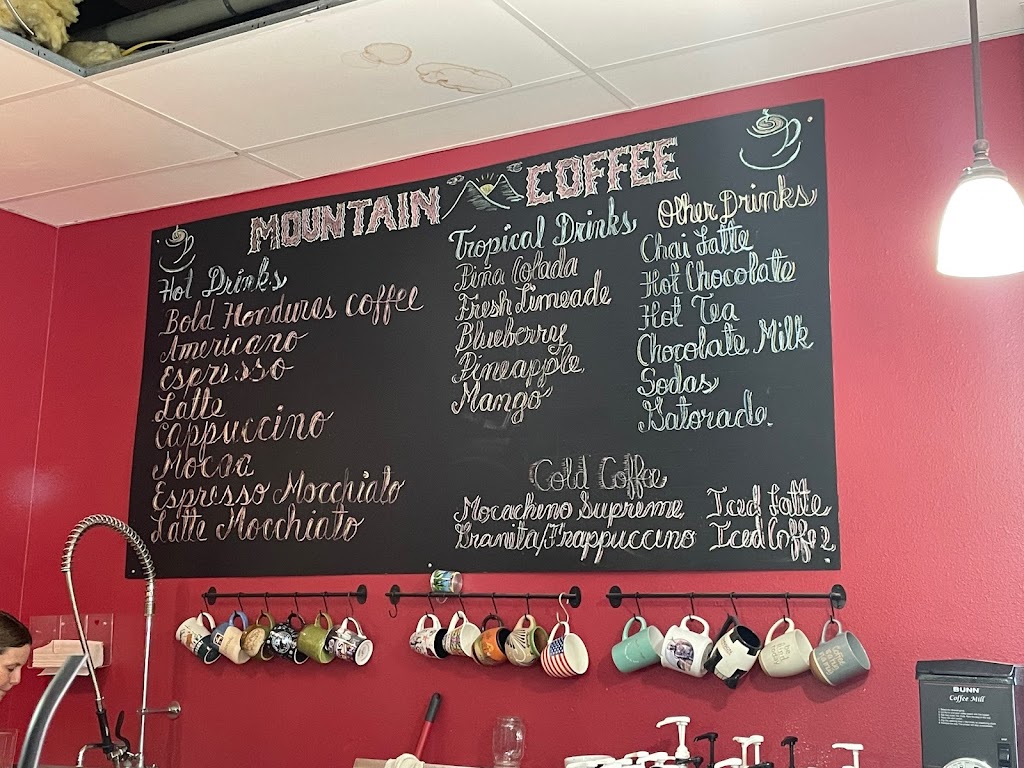 MOUNTAIN COFFEE
Hot Drinks
Bold Honduras Coffee
Americano
Espresso
Latte
Cappuccino
Mocha
Espresso Mocchiato
Latte Mocchiato
Tropical Drinks
Piña Colada
Fresh Limeade
Blueberry
Pineapple
Mango
Other Drinks
Chai Latte
Hot Chocolate
Hot Tea
Chocolate Milk
Sodas
Gatorade
Cold Coffee
Mocachino Supreme Iced Latte
Granita/Frappuccino Iced Coffe
BUNN
Coffee Mill